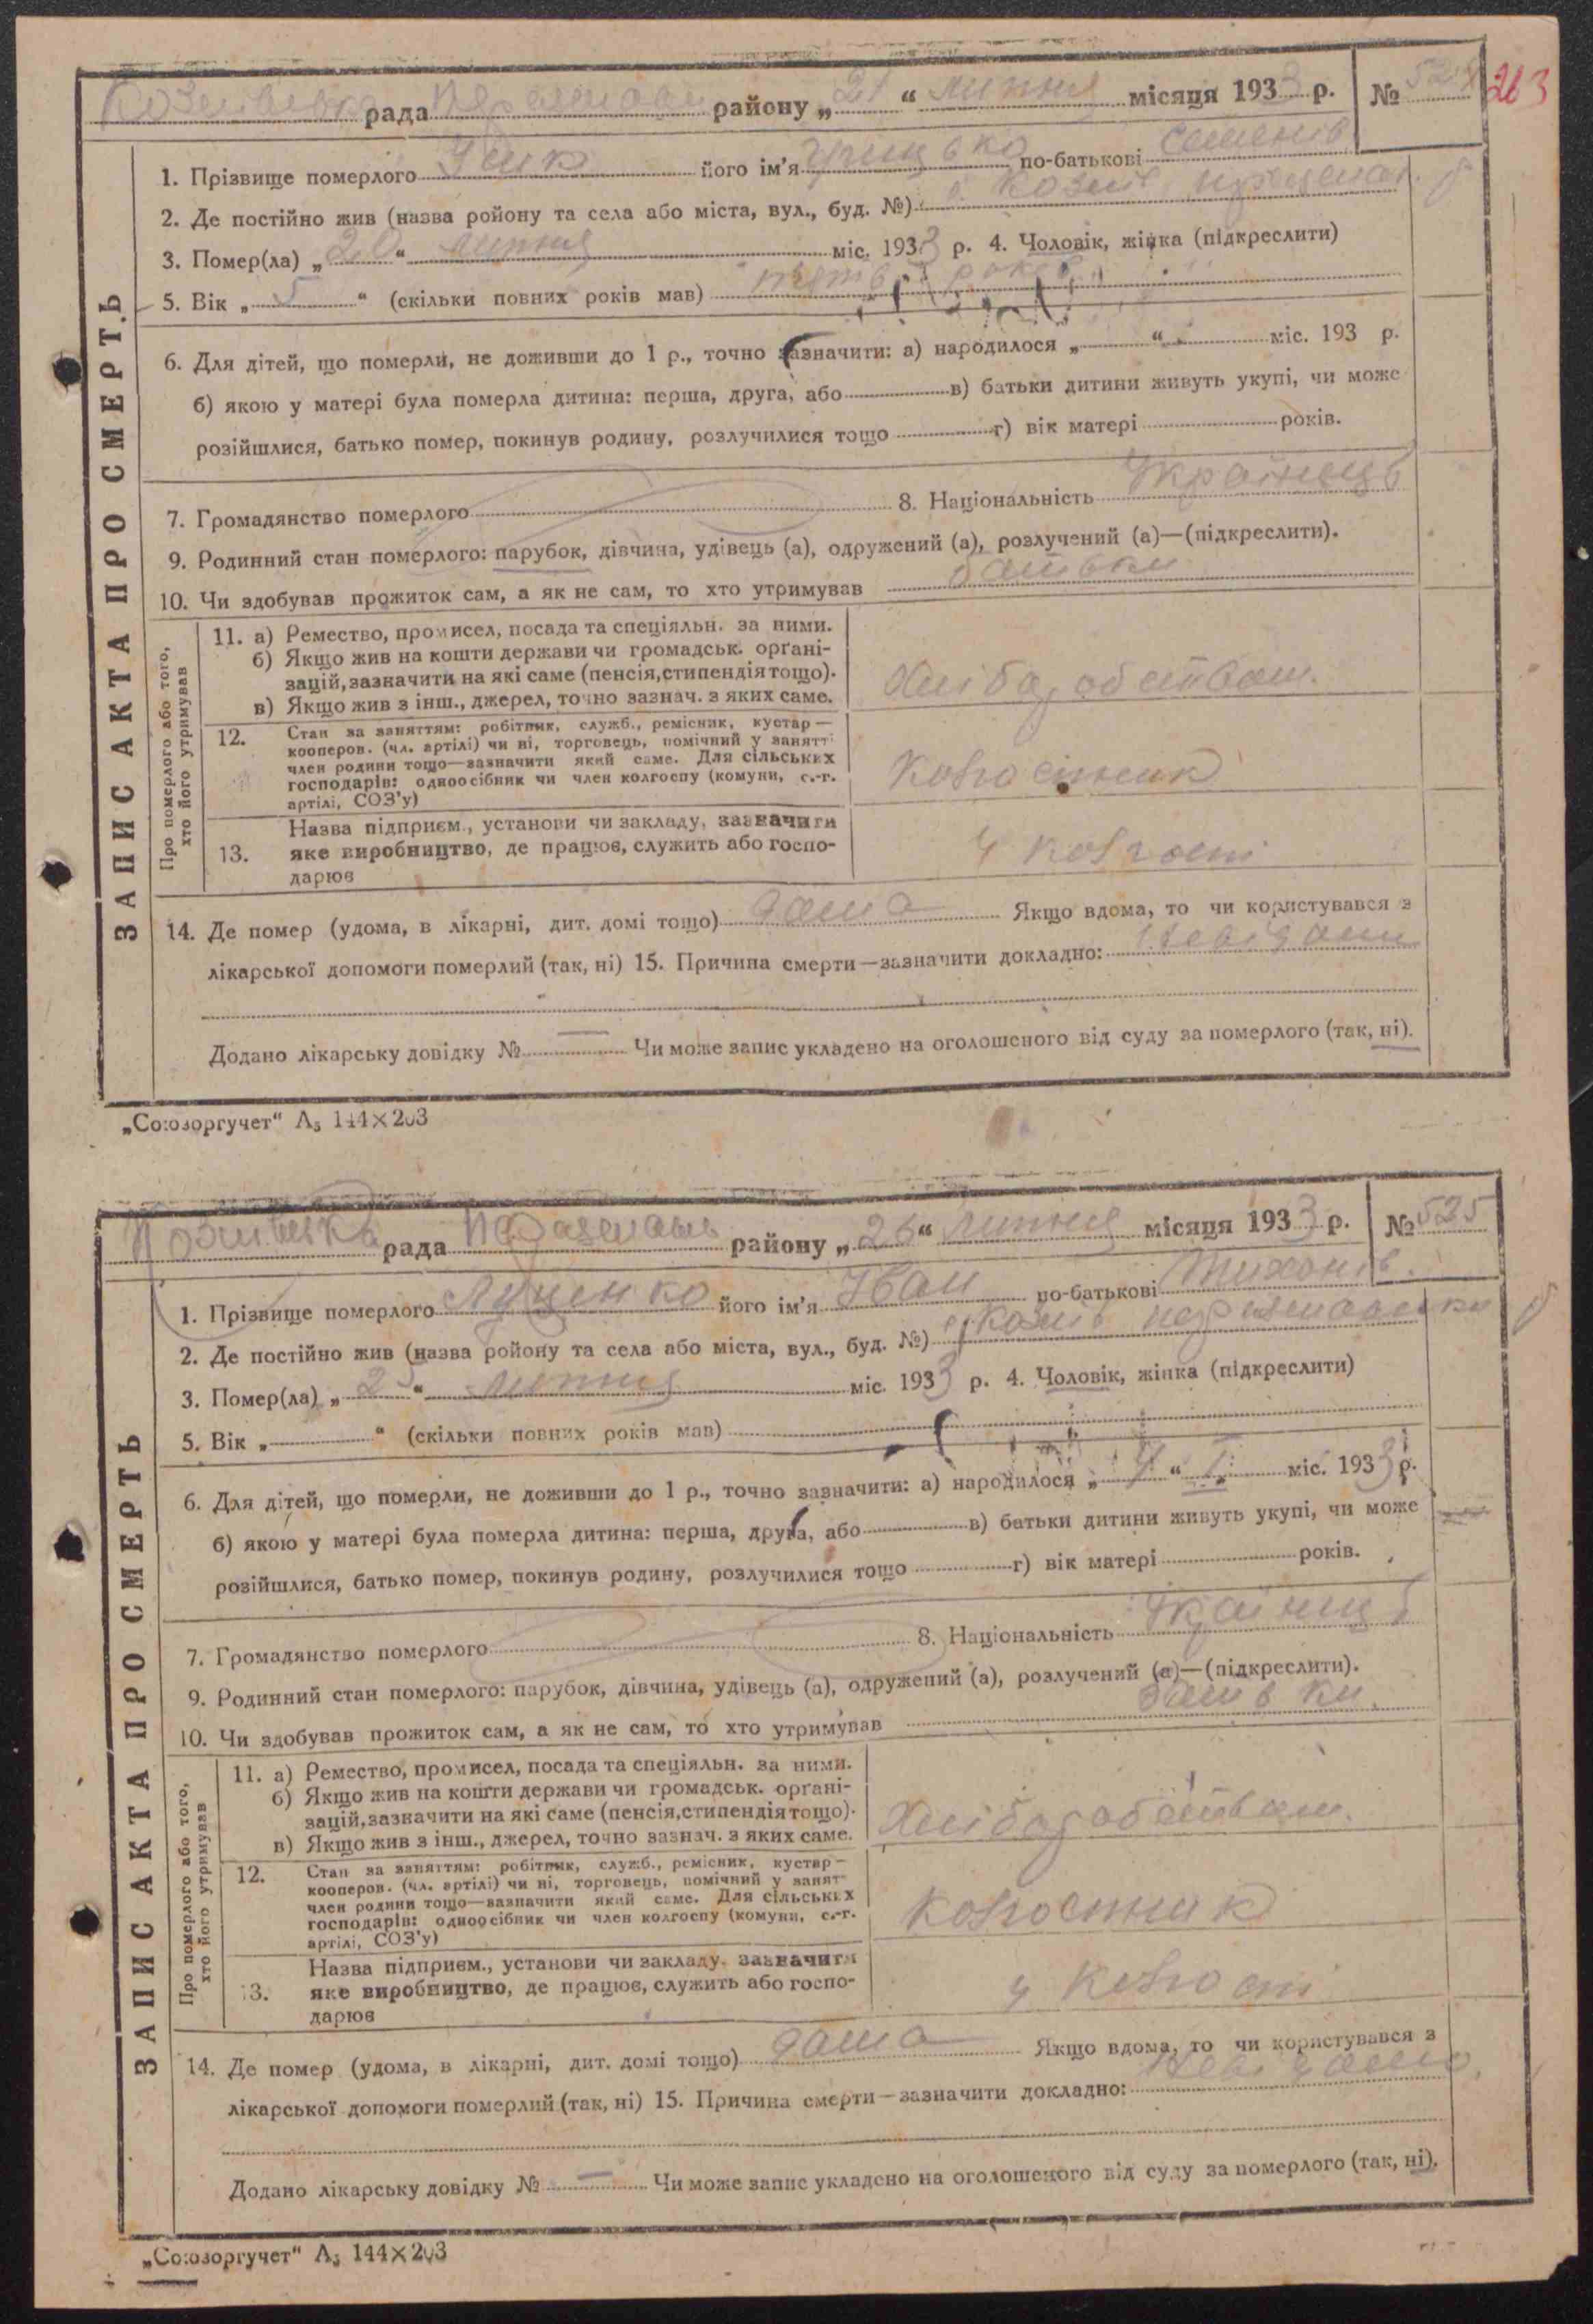 рада району „21“ липня місяця 1933 р. № 263
1. Прізвище померлого його ім'я Грицько по-батькові Семенів
2. Де постійно жив (назва ройону та села або міста, вул., буд. №)
3. Помер(ла) „20“ липня міс. 1933 р. 4. Чоловік, жінка (підкреслити)
5. Вік „5“ (скільки повних років мав) пять років
6. Для дітей, що померли, не доживши до 1 р., точно зазначити: а) народилося „ “ міс. 193 р.
б) якою у матері була померла дитина: перша, друга, або в) батьки дитини живуть укупі, чи може
розійшлися, батько помер, покинув родину, розлучилися тощо г) вік матері років.
7. Громадянство померлого 8. Національність Українець
9. Родинний стан померлого: парубок, дівчина, удівець (а), одружений (а), розлучений (а)—(підкреслити).
10. Чи здобував прожиток сам, а як не сам, то хто утримував батьки
ЗАПИС АКТА ПРО СМЕРТЬ
Про померлого або того,
хто його утримував
11. а) Ремество, промисел, посада та спеціяльн. за ними.
б) Якщо жив на кошти держави чи громадськ. орґані-
зацій, зазначити на які саме (пенсія, стипендія тощо).
в) Якщо жив з інш., джерел, точно зазнач. з яких саме.
Хлібодобством.
12. Стан за заняттям: робітник, служб., ремісник, кустар—
кооперов. (чл. артілі) чи ні, торговець, помічний у занятті
член родини тощо—зазначити який саме. Для сільських
господарів: одноосібник чи член колгоспу (комуни, с.-г.
артілі, СОЗ'у)
Колгоспник
13. Назва підприєм., установи чи закладу, зазначити
яке виробництво, де працює, служить або госпо-
дарює
у колгоспі
14. Де помер (удома, в лікарні, дит. домі тощо) дома Якщо вдома, то чи користувався з
лікарської допомоги померлий (так, ні) 15. Причина смерти—зазначити докладно: Невідомо
Додано лікарську довідку № — Чи може запис укладено на оголошеного від суду за померлого (так, ні).
„Союзоргучет“ А₅ 144×203
рада району „26“ липня місяця 1933 р. № 525
1. Прізвище померлого Луценко його ім'я Іван по-батькові Тихонів.
2. Де постійно жив (назва ройону та села або міста, вул., буд. №)
3. Помер(ла) „25“ липня міс. 1933 р. 4. Чоловік, жінка (підкреслити)
5. Вік „ “ (скільки повних років мав)
6. Для дітей, що померли, не доживши до 1 р., точно зазначити: а) народилося „ “ міс. 1933 р.
б) якою у матері була померла дитина: перша, друга, або в) батьки дитини живуть укупі, чи може
розійшлися, батько помер, покинув родину, розлучилися тощо г) вік матері років.
7. Громадянство померлого 8. Національність Українець
9. Родинний стан померлого: парубок, дівчина, удівець (а), одружений (а), розлучений (а)—(підкреслити).
10. Чи здобував прожиток сам, а як не сам, то хто утримував батьки.
ЗАПИС АКТА ПРО СМЕРТЬ
Про померлого або того,
хто його утримував
11. а) Ремество, промисел, посада та спеціяльн. за ними.
б) Якщо жив на кошти держави чи громадськ. орґані-
зацій, зазначити на які саме (пенсія, стипендія тощо).
в) Якщо жив з інш., джерел, точно зазнач. з яких саме.
Хлібодобством.
12. Стан за заняттям: робітник, служб., ремісник, кустар—
кооперов. (чл. артілі) чи ні, торговець, помічний у занят
член родини тощо—зазначити який саме. Для сільських
господарів: одноосібник чи член колгоспу (комуни, с.-г.
артілі, СОЗ'у)
Колгоспник
13. Назва підприєм., установи чи закладу, зазначити
яке виробництво, де працює, служить або госпо-
дарює
у колгоспі
14. Де помер (удома, в лікарні, дит. домі тощо) дома Якщо вдома, то чи користувався з
лікарської допомоги померлий (так, ні) 15. Причина смерти—зазначити докладно: Невідомо.
Додано лікарську довідку № — Чи може запис укладено на оголошеного від суду за померлого (так, ні).
„Союзоргучет“ А₅ 144×203